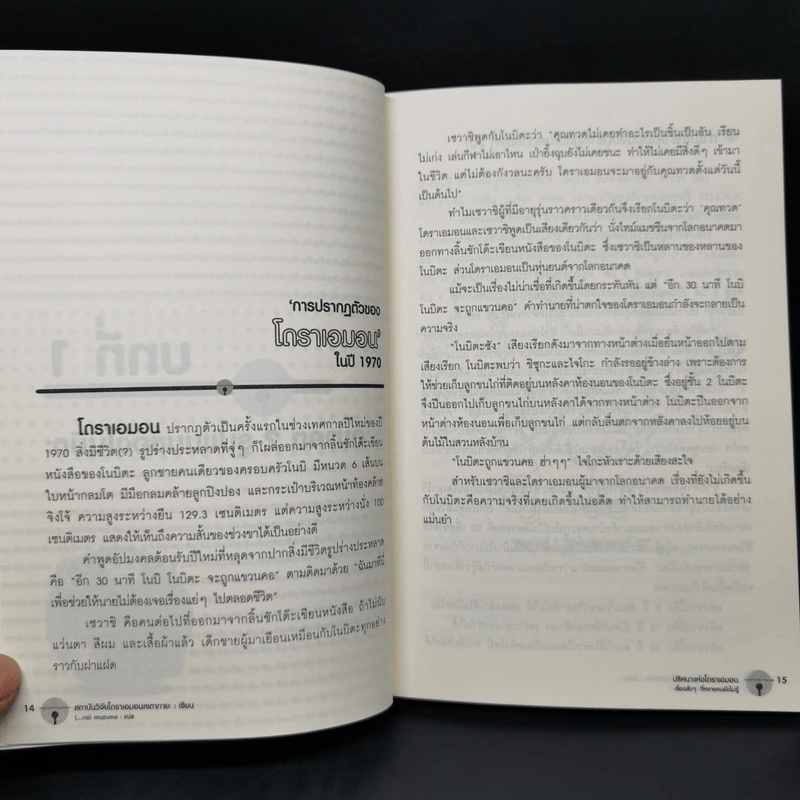 'การปรากฏตัวของ
โดราเอมอน'
ในปี 1970
โดราเอมอน ปรากฏตัวเป็นครั้งแรกในช่วงเทศกาลปีใหม่ของปี
1970 สิ่งมีชีวิต(?) รูปร่างประหลาดที่จู่ๆ ก็โผล่ออกมาจากลิ้นชักโต๊ะเขียน
หนังสือของโนบิตะ ลูกชายคนเดียวของครอบครัวโนบิ มีหนวด 6 เส้นบน
ใบหน้ากลมโต มีมือกลมคล้ายลูกปิงปอง และกระเป๋าบริเวณหน้าท้องคล้าย
จิงโจ้ ความสูงระหว่างยืน 129.3 เซนติเมตร แต่ความสูงระหว่างนั่ง 100
เซนติเมตร แสดงให้เห็นถึงความสั้นของช่วงขาได้เป็นอย่างดี
คำพูดอัปมงคลต้อนรับปีใหม่ที่หลุดจากปากสิ่งมีชีวิตรูปร่างประหลาด
คือ "อีก 30 นาที โนบิ โนบิตะ จะถูกแขวนคอ" ตามติดมาด้วย "ฉันมาที่นี่
เพื่อช่วยให้นายไม่ต้องเจอเรื่องแย่ๆ ไปตลอดชีวิต"
เซวาชิ คือคนต่อไปที่ออกมาจากลิ้นชักโต๊ะเขียนหนังสือ ถ้าไม่นับ
แว่นตา สีผม และเสื้อผ้าแล้ว เด็กชายผู้มาเยือนเหมือนกับโนบิตะทุกอย่าง
ราวกับฝาแฝด
14 สถาบันวิจัยโดราเอมอนเซตากายะ : เขียน
(...กอ) kazume : แปล
เซวาชิพูดกับโนบิตะว่า "คุณทวดไม่เคยทำอะไรเป็นชิ้นเป็นอัน เรียน
ไม่เก่ง เล่นกีฬาไม่เอาไหน เป่ายิ้งฉุบยังไม่เคยชนะ ทำให้ไม่เคยมีสิ่งดีๆ เข้ามา
ในชีวิต แต่ไม่ต้องกังวลนะครับ โดราเอมอนจะมาอยู่กับคุณทวดตั้งแต่วันนี้
เป็นต้นไป"
ทำไมเซวาชิผู้ที่มีอายุรุ่นราวคราวเดียวกันจึงเรียกโนบิตะว่า "คุณทวด"
โดราเอมอนและเซวาชิพูดเป็นเสียงเดียวกันว่า นั่งไทม์แมชชีนจากโลกอนาคตมา
ออกทางลิ้นชักโต๊ะเขียนหนังสือของโนบิตะ ซึ่งเซวาชิเป็นหลานของหลานของ
โนบิตะ ส่วนโดราเอมอนเป็นหุ่นยนต์จากโลกอนาคต
แม้จะเป็นเรื่องไม่น่าเชื่อที่เกิดขึ้นโดยกระทันหัน แต่ "อีก 30 นาที โนบิ
โนบิตะ จะถูกแขวนคอ" คำทำนายที่น่าตกใจของโดราเอมอนกำลังจะกลายเป็น
ความจริง
"โนบิตะซัง" เสียงเรียกดังมาจากทางหน้าต่างเมื่อยื่นหน้าออกไปตาม
เสียงเรียก โนบิตะพบว่า ชิซุกะและไจโกะ กำลังรออยู่ข้างล่าง เพราะต้องการ
ให้ช่วยเก็บลูกขนไก่ที่ติดอยู่บนหลังคาห้องนอนของโนบิตะ ซึ่งอยู่ชั้น 2 โนบิตะ
จึงปีนออกไปเก็บลูกขนไก่บนหลังคาได้จากทางหน้าต่าง โนบิตะปีนออกจาก
หน้าต่างห้องนอนเพื่อเก็บลูกขนไก่ แต่กลับลื่นตกจากหลังคาลงไปห้อยอยู่บน
ต้นไม้ในสวนหลังบ้าน
"โนบิตะถูกแขวนคอ ฮ่าๆๆ" ไจโกะหัวเราะด้วยเสียงสะใจ
สำหรับเซวาชิและโดราเอมอนผู้มาจากโลกอนาคต เรื่องที่ยังไม่เกิดขึ้น
กับโนบิตะคือความจริงที่เคยเกิดขึ้นในอดีต ทำให้สามารถทำนายได้อย่าง
แม่นยำ
ปริศนาแห่งโดราเอมอน 15
เรื่องลับๆ ที่หลายคนยังไม่รู้